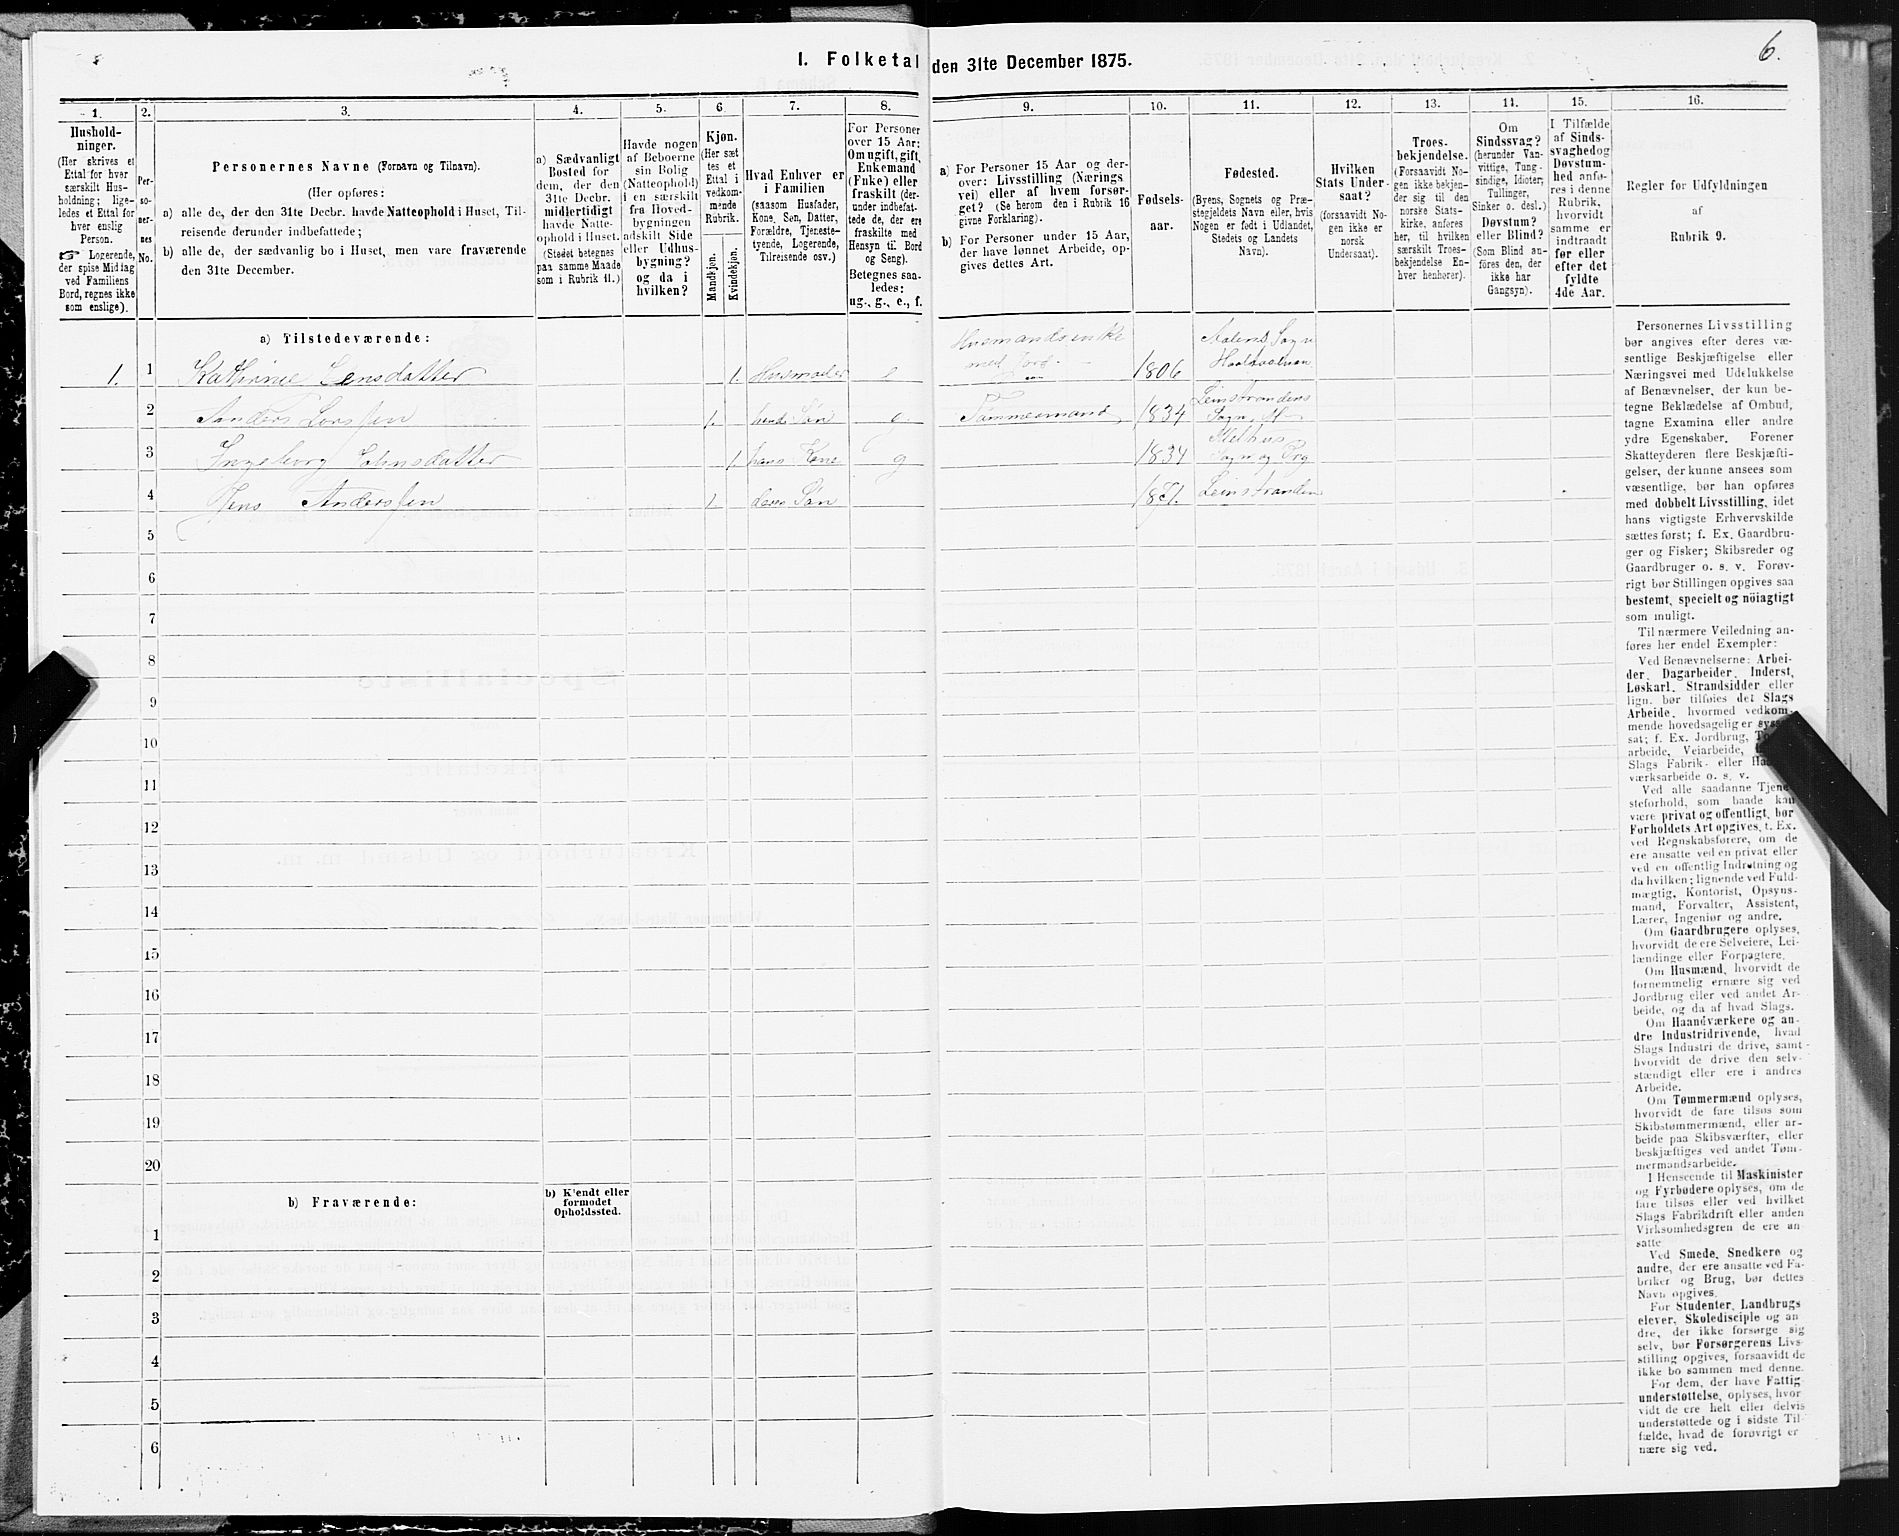 6.
I. Folketal den 31te December 1875.
1. 2. 3. 4. 5. 6 7. 8. 9. 10. 11. 12. 13. 14. 15. 16.
Hushold-
ninger.
(Her skrives et
Ettal for hver
særskilt Hus-
holdning; lige-
ledes et Ettal for
hver enslig
Person.
☞ Logerende,
der spise Middag
ved Familiens
Bord, regnes ikke
som enslige).
Per-
so-
ner-
nes
No.
Personernes Navne (Fornavn og Tilnavn).
(Her opføres:
a) alle de, der den 31te Decbr. havde Natteophold i Huset, Til-
reisende derunder indbefattede;
b) alle de, der sædvanlig bo i Huset, men vare fraværende
den 31te December.
a) Sædvanligt
Bosted for
dem, der den
31te Decbr.
midlertidigt
havde Natte-
ophold i Huset.
(Stedet betegnes
paa samme Maade
som i Rubrik 11.)
Havde nogen
af Beboerne
sin Bolig
(Natteophold)
i en særskilt
fra Hoved-
bygningen
adskilt Side
eller Udhus-
bygning?
og da i
hvilken?
Kjøn.
(Her sæt
tes et
Ettal i
vedkom-
mende
Rubrik.
Mandkjøn.
Kvindekjøn.
Hvad Enhver er
i Familien
(saasom Husfader,
Kone, Søn, Datter,
Forældre, Tjeneste-
tyende, Logerende,
Tilreisende osv.)
For Personer
over 15 Aar:
Om ugift, gift,
Enkemand
(Enke) eller
fraskilt (der-
under indbefat-
tede de, der ere
fraskilte med
Hensyn til Bord
og Seng).
Betegnes saa-
ledes:
ug., g., e., f.
a) For Personer 15 Aar og der-
over: Livsstilling (Nærings
vei) eller af hvem forsør-
get? (Se herom den i Rubrik 16
givne Forklaring).
b) For Personer under 15 Aar,
der have lønnet Arbeide, op-
gives dettes Art.
Fødsels-
aar.
Fødested.
(Byens, Sognets og Præ-
stegjeldets Navn eller, hvis
Nogen er født i Udlandet,
Stedets og Landets
Navn).
Hvilken
Stats Under-
saat?
(forsaavidt No-
gen ikke er
norsk
Undersaat).
Troes-
bekjendelse.
(Forsaavidt No-
gen ikke bekjen-
der sig til den
norske Stats-
kirke, anføres
her, til hvilken
særskilt Troes-
bekjendelse En-
hver henhører).
Om
Sindssvag?
(herunder Van-
vittige, Tung-
sindige, Idioter,
Tullinger,
Sinker o. desl.)
Døvstum?
eller Blind?
(Som Blind an-
føres den, der
ikke har
Gangsyn).
I Tilfælde
af Sinds-
svaghed og
Døvstum-
hed anfø-
res i denne
Rubrik,
hvorvidt
samme er
indtraadt
før eller
efter det
fyldte
4de Aar.
Regler for Udfyldningen
af
Rubrik 9.
a) Tilstedeværende:
1. 1 Kathrine Lensdatter 1. Husmoder e Husmandsenke med Jord 1806 Aalens Sogn
2 Anders Larssen 1. hendes Søn g Tømmermand 1834 Leinstrandens Sogn
3 Ingeborg Johnsdatter 1. hans Kone g 1834 Melhus Sogn og Prg
4 Jens Anderssen 1. deres Søn 1871. Leinstranden
5
6
7
8
9
10
11
12
13
14
15
16
17
18
19
20
b) Fraværende:
b) Kjendt eller
formodet
Opholdssted.
1
2
3
4
5
6
Personernes Livsstilling
bør angives efter deres væ-
sentlige Beskjæftigelse eller
Næringsvei med Udelukkelse
af Benævnelser, der kun be-
tegne Beklædelse af Ombud,
tagne Examina eller andre
ydre Egenskaber. Forener
Skatteyderen flere Beskjæfti-
gelser, der kunne ansees som
væsentlige, bør han opføres
med dobbelt Livsstilling, idet
hans vigtigste Erhvervskilde
sættes først; f. Ex. Gaardbru-
ger og Fisker; Skibsreder og
Gaardbruger o. s. v. Forøv-
rigt bør Stillingen opgives saa
bestemt, specielt og nöiagtigt
som muligt.
Til nærmere Veiledning an-
føres her endel Exempler:
Ved Benævnelserne: Arbei-
der, Dagarbeider, Inderst,
Løskarl, Strandsidder eller
lign. bør tilføies det Slags
Arbeide, hvormed vedkom-
mende hovedsagelig er syssel-
sat; f. Ex. Jordbrug,
arbeide, Veiarbeide,
Slags Fabrik- eller
værksarbeide o. s. v.
Ved alle saadanne Tjene-
steforhold, som baade kan
være privat og offentligt, bør
Forholdets Art opgives, t. Ex.
ved Regnskabsførere, om de
ere ansatte ved en privat eller
ved en offentlig Indretning og
da hvilken; lignende ved Fuld-
mægtig, Kontorist, Opsyns-
mand, Forvalter, Assistent,
Lærer, Ingeniør og andre.
Om Gaardbrugere oplyses,
hvorvidt de ere Selveiere, Lei-
lændinge eller Forpagtere.
Om Husmænd, hvorvidt de
fornemmelig ernære sig ved
Jordbrug eller ved andet Ar-
beide, og da af hvad Slags.
Om Haandværkere og an-
dre Industridrivende, hvad
Slags Industri de drive, samt
hvorvidt de drive den selv-
stændigt eller ere i andres
Arbeide.
Om Tømmermænd oplyses,
hvorvidt de fare tilsøs som
Skibstømmermænd, eller ar-
beide paa Skibsværfter, eller
beskjæftiges ved andet Tøm-
mermandsarbeide.
I Henseende til Maskinister
og Fyrbødere oplyses, om de
fare tilsøs eller ved hvilket
Slags Fabrikdrift eller anden
Virksomhedsgren de ere an-
satte
Ved Smede, Snedkere og
andre, der ere ansatte ved Fa-
briker og Brug, bør dettes
Navn opgives.
For Studenter, Landbrugs
elever, Skoledisciple og an
dre, der ikke forsørge sig
selv, bør Forsørgerens Livs-
stilling opgives, forsaavidt de
ikke bo sammen med denne.
For dem, der have Fattig
understøttelse, oplyses, hvor
vidt de ere helt eller delvis
understøttede og i sidste Til-
fælde, hvad de forøvrigt er
nære sig ved.